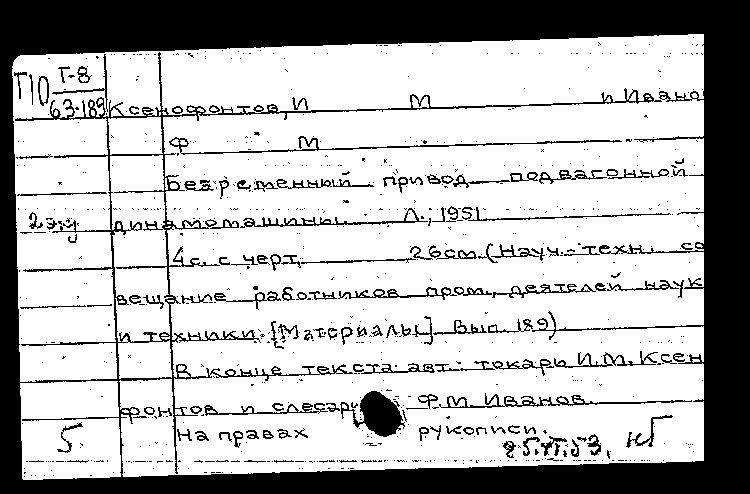 Г10 Т-8
63-189 Ксенофонтов, И М и Ивано
Ф М
Безременный привод подвагонной
2 экз динамомашины. Л., 1951
4с. с черт. 26см. (Науч.-техн. со
вещание работников пром., деятелей наук
и техники. [Материалы] Вып. 189).
В конце текста авт.: токарь И.М. Ксен
фонтов и слесарь Ф.М. Иванов.
5 На правах рукописи.
25.VI.53. кГ